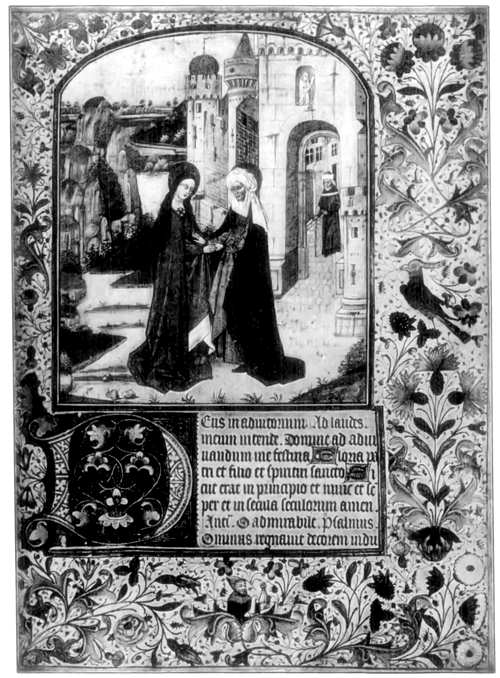 Deus in adiutorium. Ad laudes.
meum intende. Domine ad adiu
uandum me festina. Gloria pa
tri et filio et spiritui sancto Si
cut erat in principio et nunc et se
per et in secula seculorum amen.
O admirabile. Psalmus.
ominus regnauit decorem indu